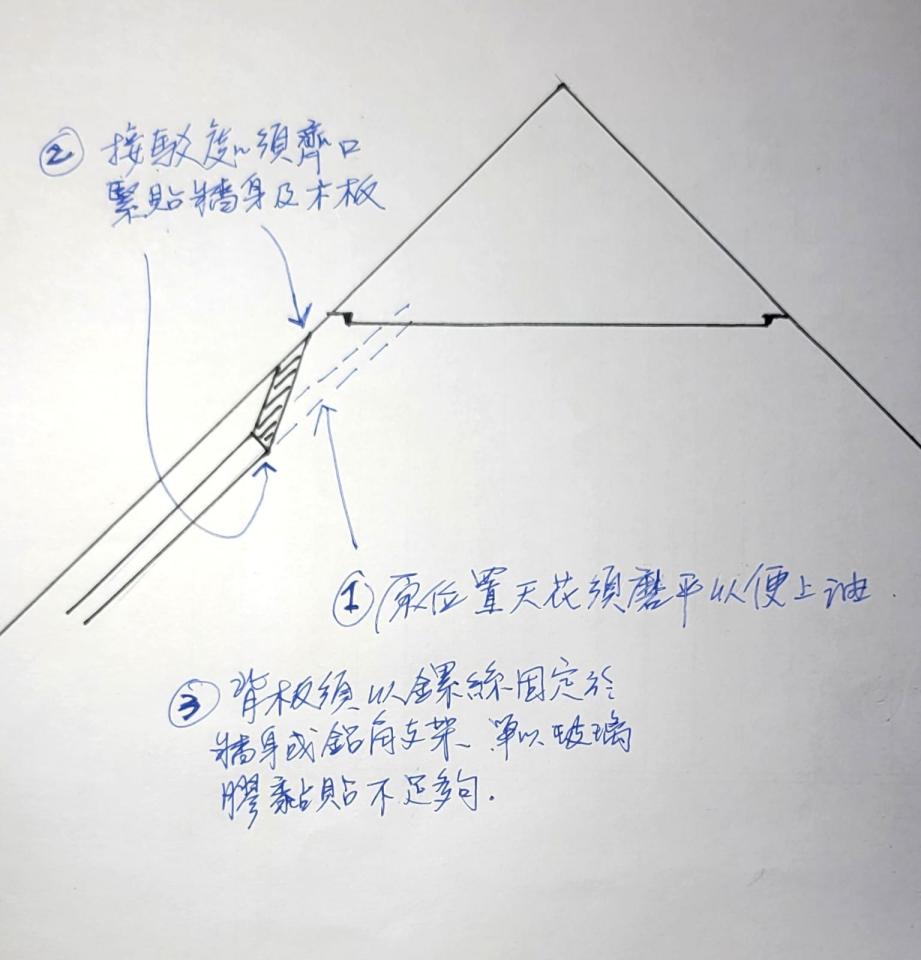 ② 接駁度必須齊口
緊貼牆身及木板
① 原位置天花須磨平以便上油.
③ 背板須以鏍絲固定於
牆身或鋁角支架、單以玻璃
膠黏貼不足夠.